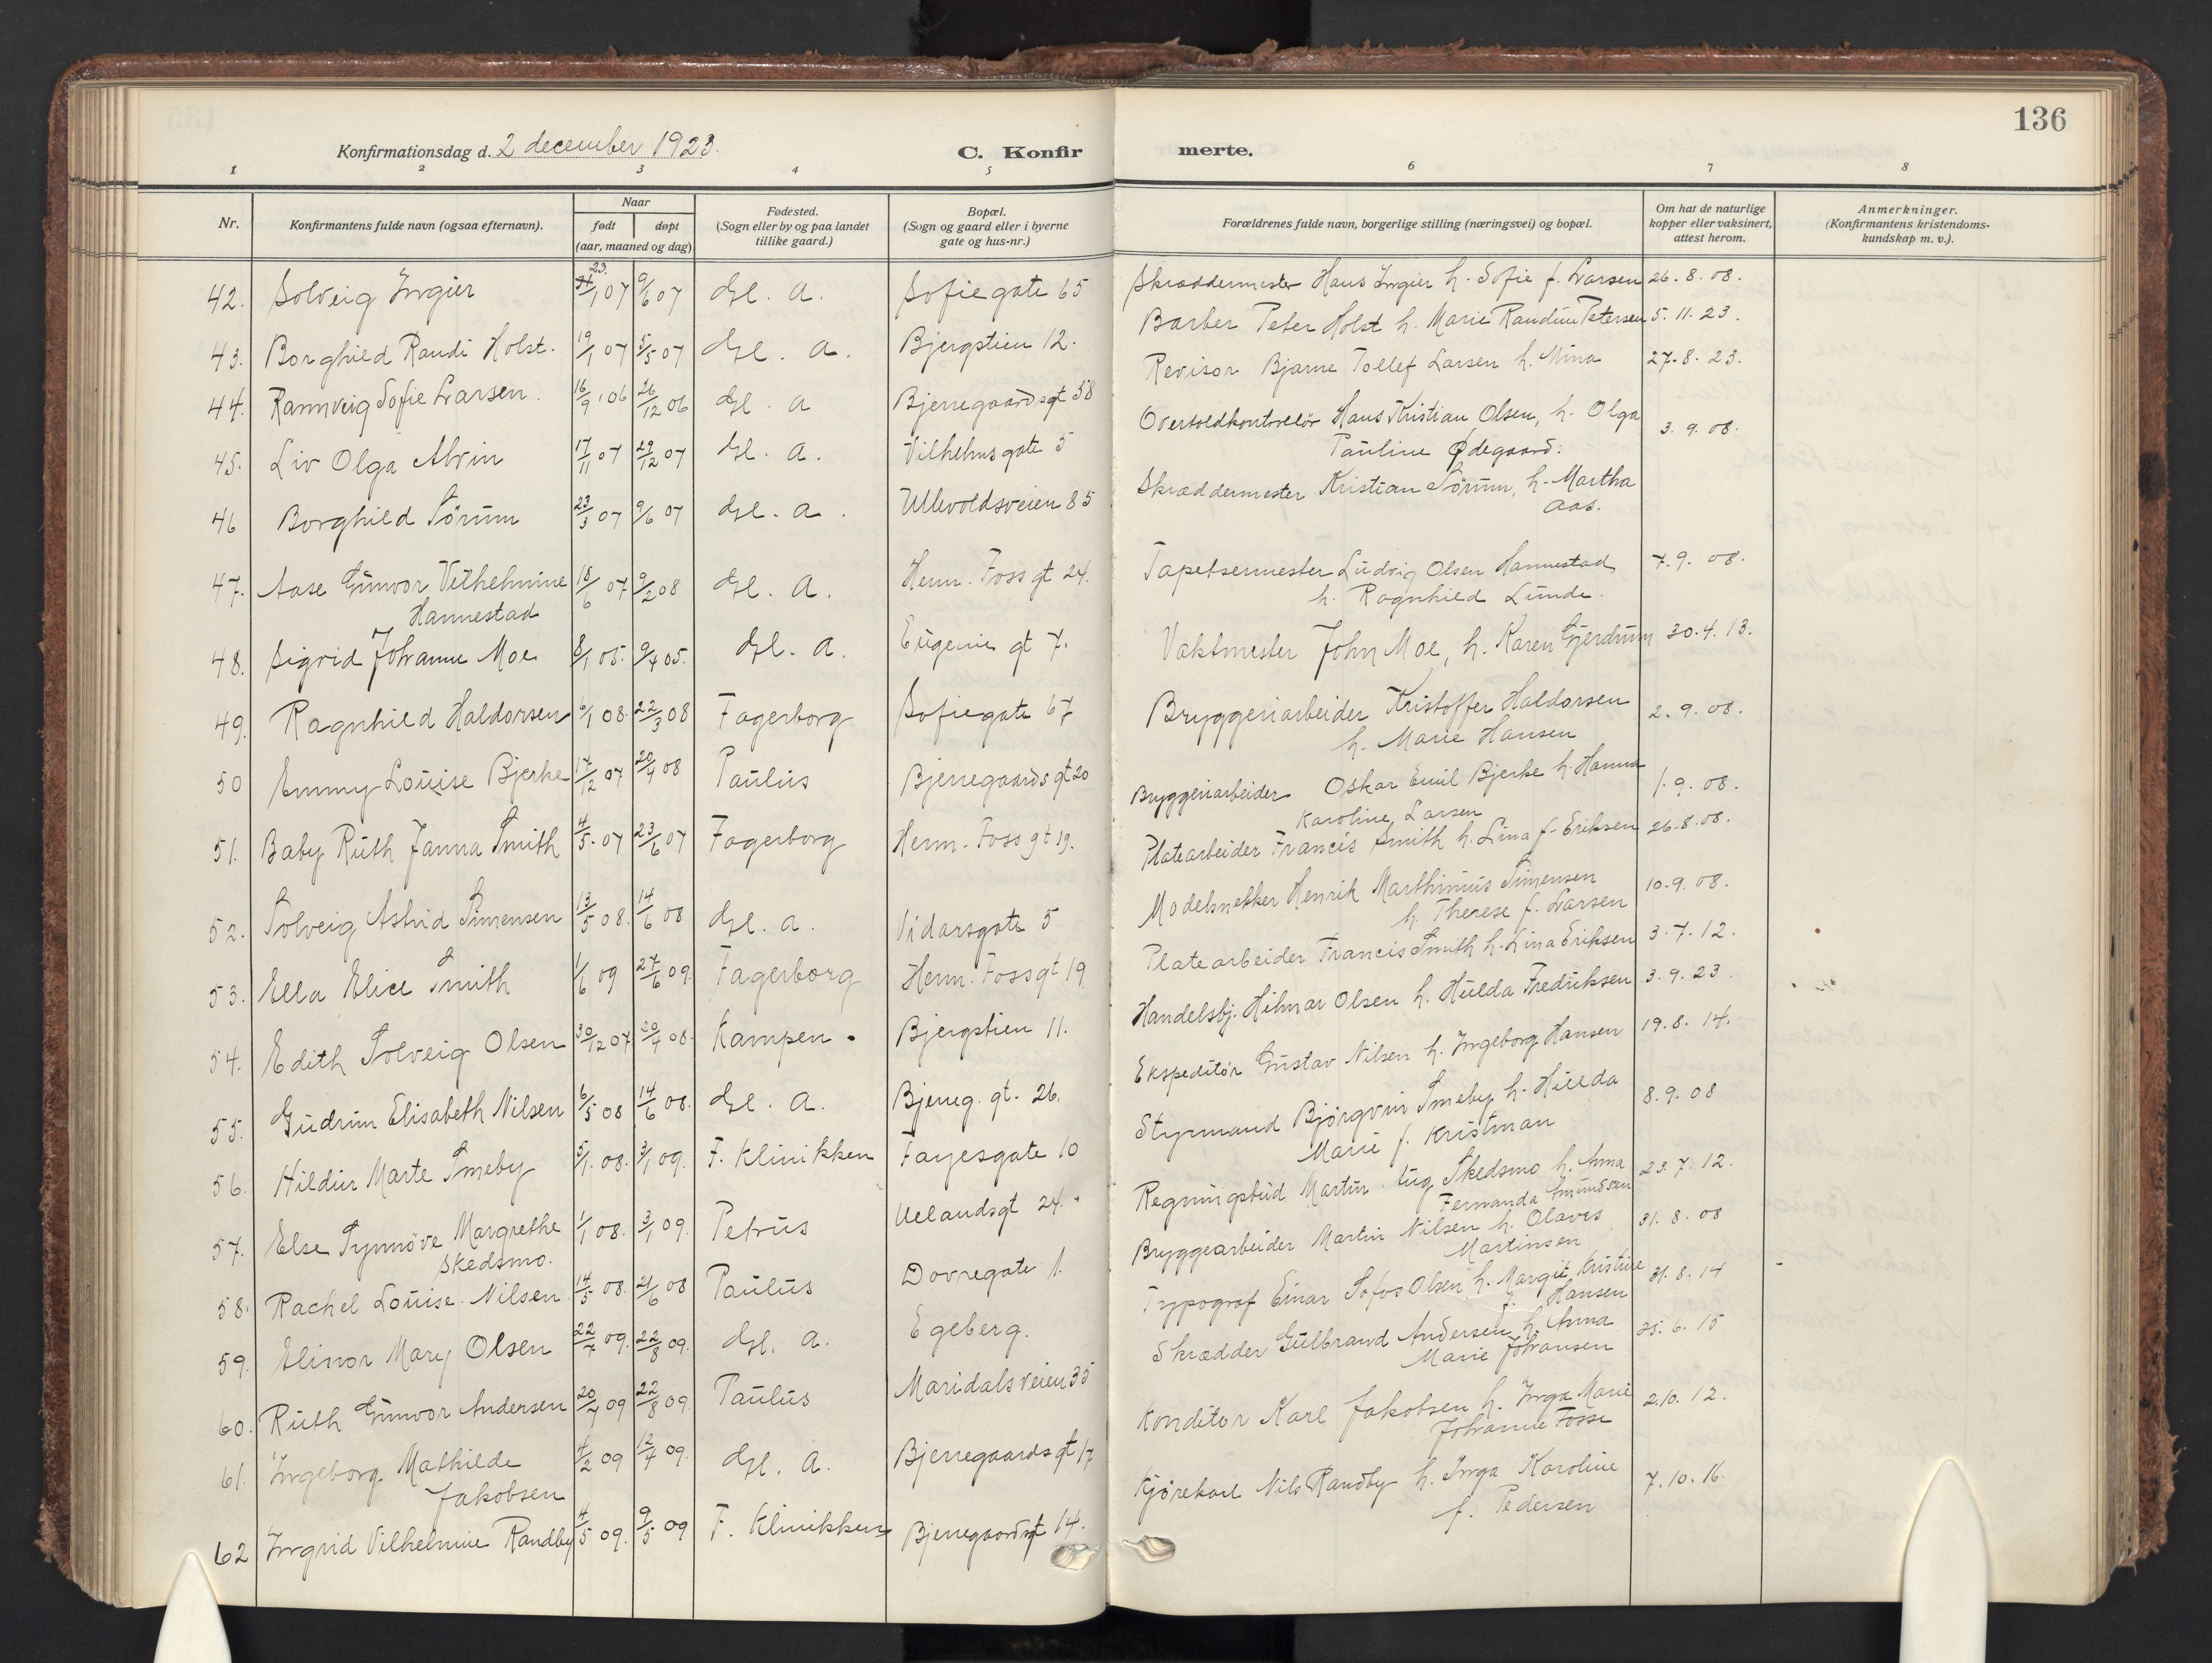 136
Konfirmationsdag d. 2 december 1923.
C. Konfir
merte.
1 2 3 4 5 6 7 8
Nr.
Konfirmantens fulde navn (ogsaa efternavn).
Naar
født døpt
(aar, maaned og dag)
Fødested.
(Sogn eller by og paa landet
tillike gaard.)
Bopæl.
(Sogn og gaard eller i byerne
gate og hus-nr.)
Forældrenes fulde navn, borgerlige stilling (næringsvei) og bopæl.
Om hat de naturlige
kopper eller vaksinert,
attest herom.
Anmerkninger.
(Konfirmantens kristendoms-
kundskap m. v.).
42. Solveig Ingier 23. /1 07 9/6 07 Gl. A. Sofiegate 65 Skræddermester Hans Ingier h. Sofie f. Larsen 26.8.08.
43. Borghild Randi Holst. 19/1 07 5/5 07 Gl. A. Bjergstien 12. Barber Peter Holst h. Marie Randine Petersen 5.11.23.
44. Rannveig Sofie Larsen. 16/9 06 26/12 06 Gl. A Bjerregaardsgt 58 Revisor Bjarne Tollef Larsen h. Mina 27.8.23.
45. Liv Olga Alvin 17/11 07 29/12 07 Gl. A. Vilhelmsgate 5 Overtoldkontrollør Hans Kristian Olsen, h. Olga
Pauline Ødegaard. 3.9.08.
46 Borghild Sörum 23/3 07 9/6 07 Gl. A. Ullevoldsveien 85 Skræddermester Kristian Sörum, h. Martha
Aas.
47. Aase Gunvor Vilhelmine
Hannestad 18/6 07 9/2 08 Gl. A. Herm. Foss gt 24. Tapetsermester Ludvig Olsen Hannestad
h. Ragnhild Lunde. 7.9.08.
48. Sigrid Johanne Moe 8/1 05. 9/4 05. Gl. A. Eugenie gt 7. Vaktmester John Moe, h. Karen Gjerdrum 30.4.13.
49. Ragnhild Haldorsen 6/1 08. 22/3 08 Fagerborg Sofiegate 67 Bryggeriarbeider Kristoffer Haldorsen
h. Marie Hansen 2.9.08.
50 Emmy Louise Bjerke 17/12 07 20/4 08 Paulus Bjerregaards gt 20 Bryggeriarbeider Oskar Emil Bjerke h. Hanna
Karoline Larsen 1.9.08.
51. Baby Ruth Janna Smith 4/5. 07 23/6 07 Fagerborg Herm. Foss gt 19. Platearbeider Francis Smith h. Lina f. Eriksen 26.8.08.
52. Solveig Astrid Simensen 13/5 08. 14/6 08 Gl. A. Vidarsgate 5 Modelsnekker Henrik Marthinius Simensen
h. Therese f. Larsen 10.9.08.
53. Ella Elice Smith 1/6 09 27/6 09. Fagerborg Herm. Foss gt 19 Platearbeider Francis Smith h. Lina Eriksen 3.7.12.
54. Edith Solveig Olsen 30/12 07 20/4 08. Kampen. Bjergstien 11. Handelsbj. Hilmar Olsen h. Hulda Fredriksen 3.9.23.
55. Gudrun Elisabeth Nilsen 6/5 08 14/6 08. Gl. A. Bjerreg. gt. 26. Ekspeditør Gustav Nilsen h. Ingeborg Hansen 19.8.14.
56. Hildur Marte Smeby 5/1. 08. 3/1 09. F. Klinikken Fayesgate 10 Styrmand Bjørgvin Smeby h. Hillda
Marie f. Kristman 8.9.08
57. Else Synnöve Margrethe
Skedsmo. 1/1 08. 3/1 09. Petrus Uelandsgt 24. Regningsbud Martin Skedsmo h. Anna
Fernanda Amundsen 23.7.12.
58. Rachel Louise Nilsen 14/5 08. 21/6 08 Paulus Dovregate 1. Bryggearbeider Martin Nilsen h. Olaves
Martinsen 31.8.08
59. Elinor Mary Olsen 22/7 09. 22/8 09. Gl. A. Egeberg. Typograf Einar Sofos Olsen h. Margit Kristine
f. Hansen 31.8.14
60. Ruth Gunvor Andersen 20/7 09 22/8 09. Paulus Maridalsveien 35 Skrædder Gulbrand Andersen h. Anna
Marie Johansen 25.6.15
61. Ingeborg Mathilde
Jakobsen 4/2 09 12/4 09. Gl. A. Bjerregaards gt 17 Konditor Karl Jakobsen h. Inga Marie
Johanne Fosse 2.10.12.
62 Ingrid Vilhelmine Randby 4/5 09. 9/5 09 F. Klinikken Bjerregaards gt 14. Kjørekarl Nils Randby h. Inga Karoline
f. Pedersen 7.10.16.